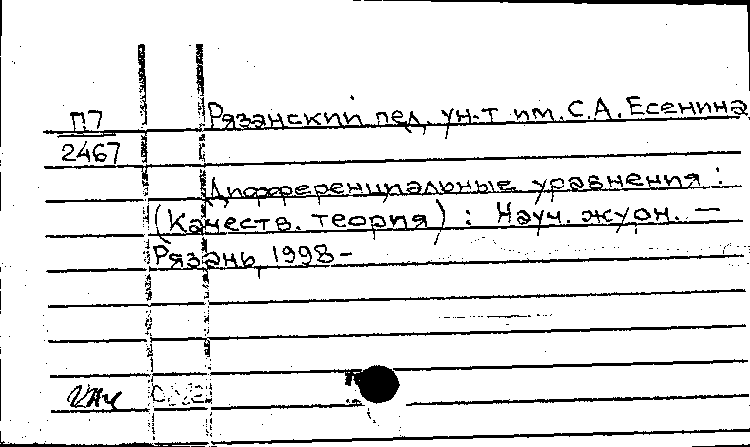 П7 Рязанский пед. ун-т им. С.А. Есенина
2467
Дифференциальные уравнения :
(Качеств. теория) : Науч. журн. —
Рязань, 1998-